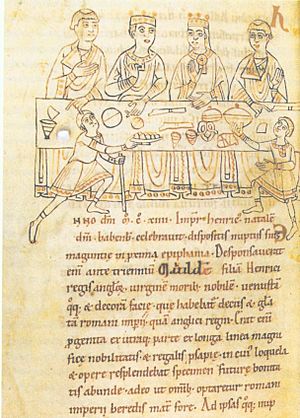 NNO dnī. M̊. C̊. xiiii. Impr henric' natalē
dnī babenb. celebravit. dispositis nuptiis suis
maguntie in prima epiphania. Desponsaverat
enī ante trienniū filiā Henrici
regis anglor. virginē morib; nobilē. venustā
qq; & decorā facie. que habebat & glā
tā romani impii. quā anglici regni. Erat enī
pgenita ex utraq; parte ex longa linea magni
fice nobilitatis & regalis psapie. in cui' loquela
& opere resplendebat specimen future bonita
tis abunde. adeo ut omīb; optaretur romani
imperii heredis mat̄ fore. Ad ipsas qq; nup